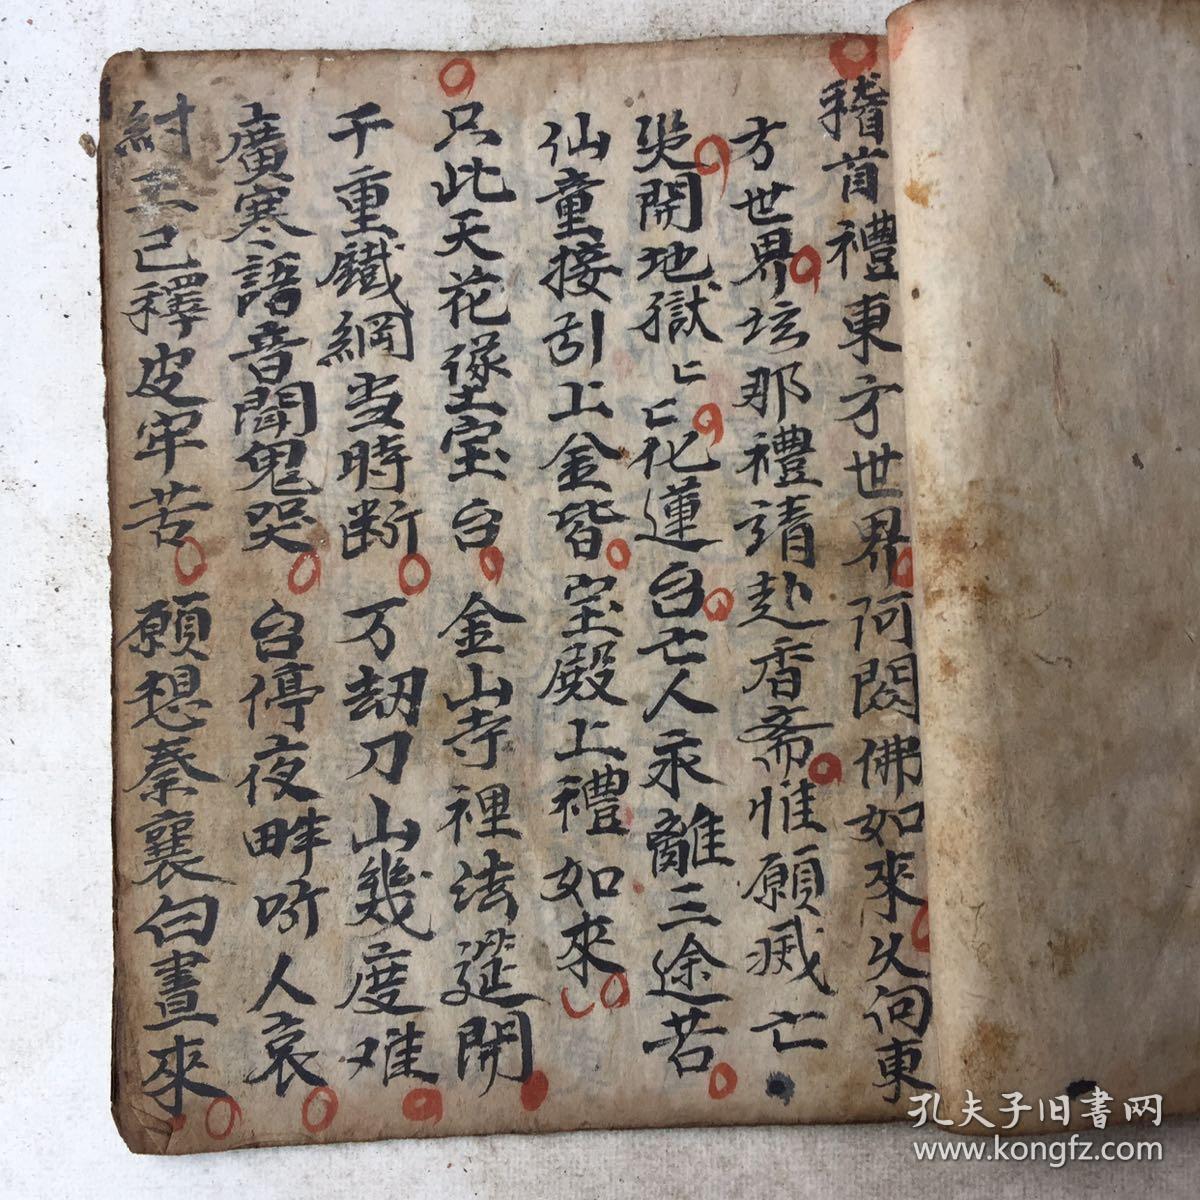 稽首禮東方世界阿閦佛如來久向東
方世界坛那禮請赴香斋惟願㓕亡
災開地獄〻〻化蓮台亡人永離三途苦
仙童接引上金皆宝殿上禮如來
只此天花墜宝台金山寺裡法筵開
千重鐵網当時断万劫刀山幾度难
廣寒語音聞鬼哭台停夜畔听人哀
紂王已釋皮牢苦願想秦襄白晝來
孔夫子旧书网
www.kongfz.com